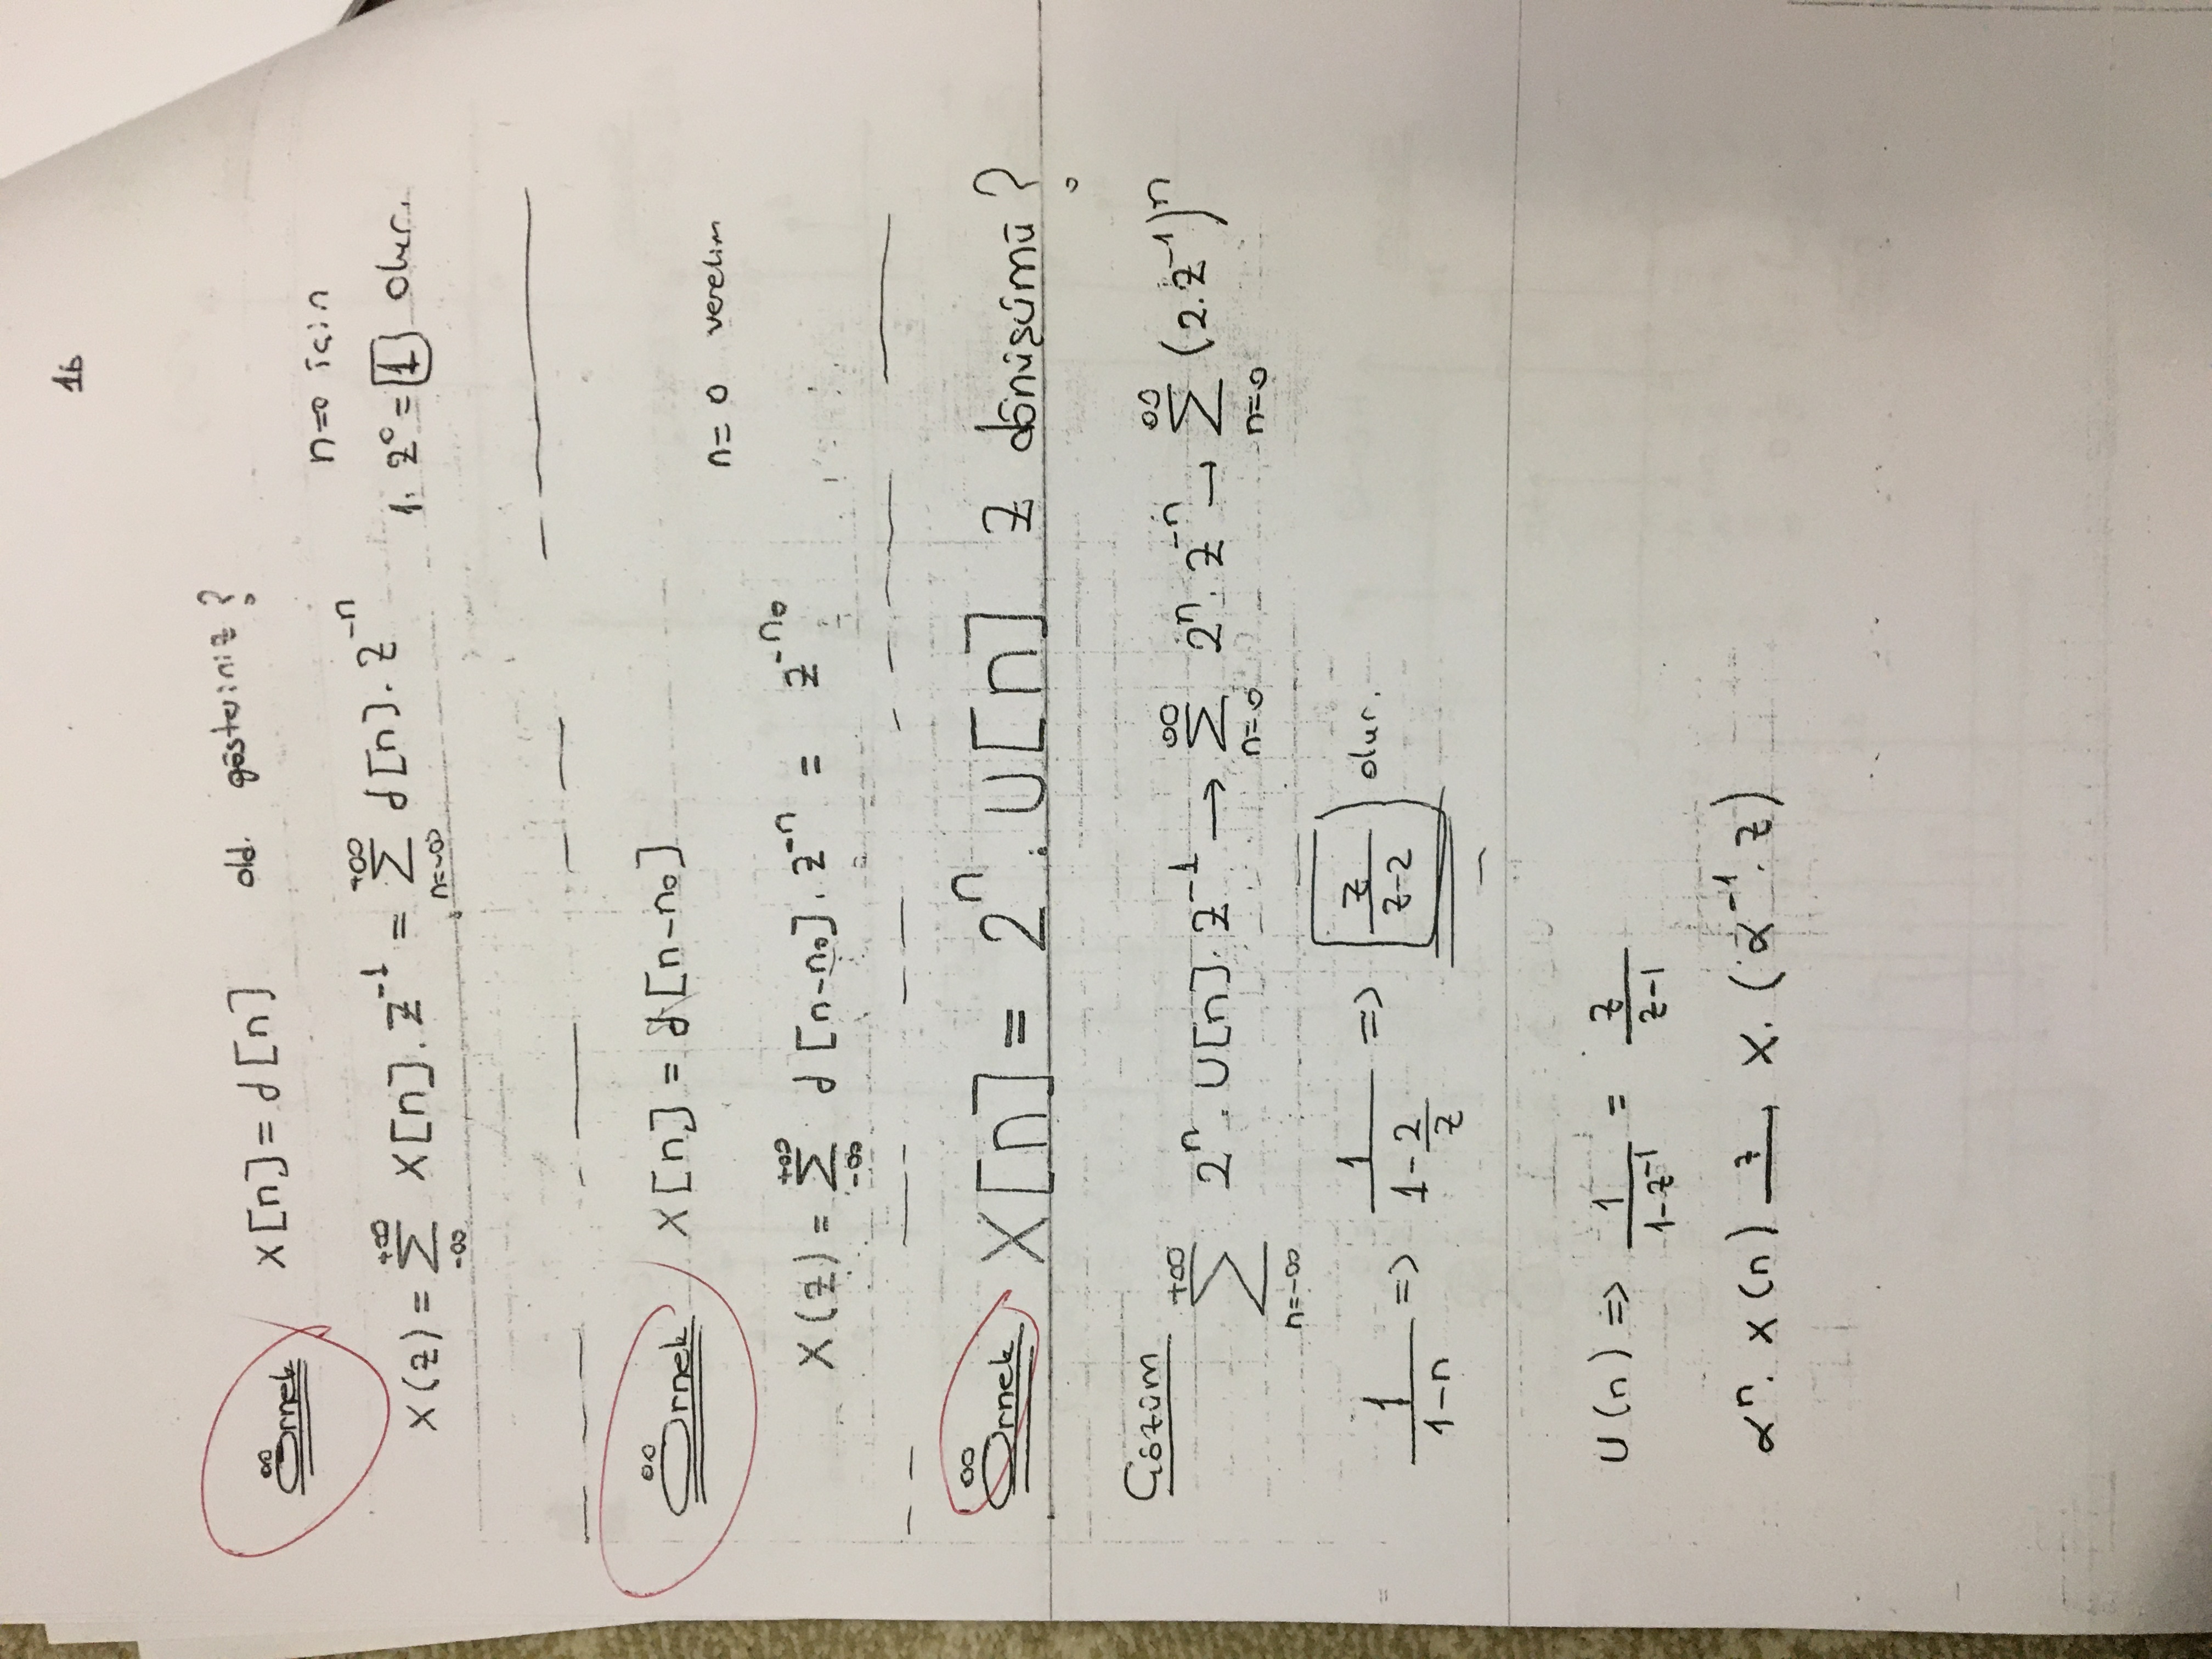 16
Örnek x[n] = d[n] old. gösteriniz?
n=0 için
X(z) = +∞ Σ -∞ x[n] . z^-1 = +∞ Σ n=-∞ d[n] . z^-n 1. z^0 = 1 olur.
Örnek x[n] = d[n-n0]
n= 0 verelim
X(z) = +∞ Σ -∞ d[n-n0] . z^-n = z^-n0
Örnek X[n] = 2^n . U[n] z dönüşümü?
Çözüm
+∞ Σ n=-∞ 2^n . U[n] . z^-1 → ∞ Σ n=0 2^n . z^-n → ∞ Σ n=0 (2.z^-1)^n
1/(1-n) => 1/(1-2/z) => z/(z-2) olur.
U(n) => 1/(1-z^-1) = z/(z-1)
α^n . x(n) z→ X. (α^-1 . z)